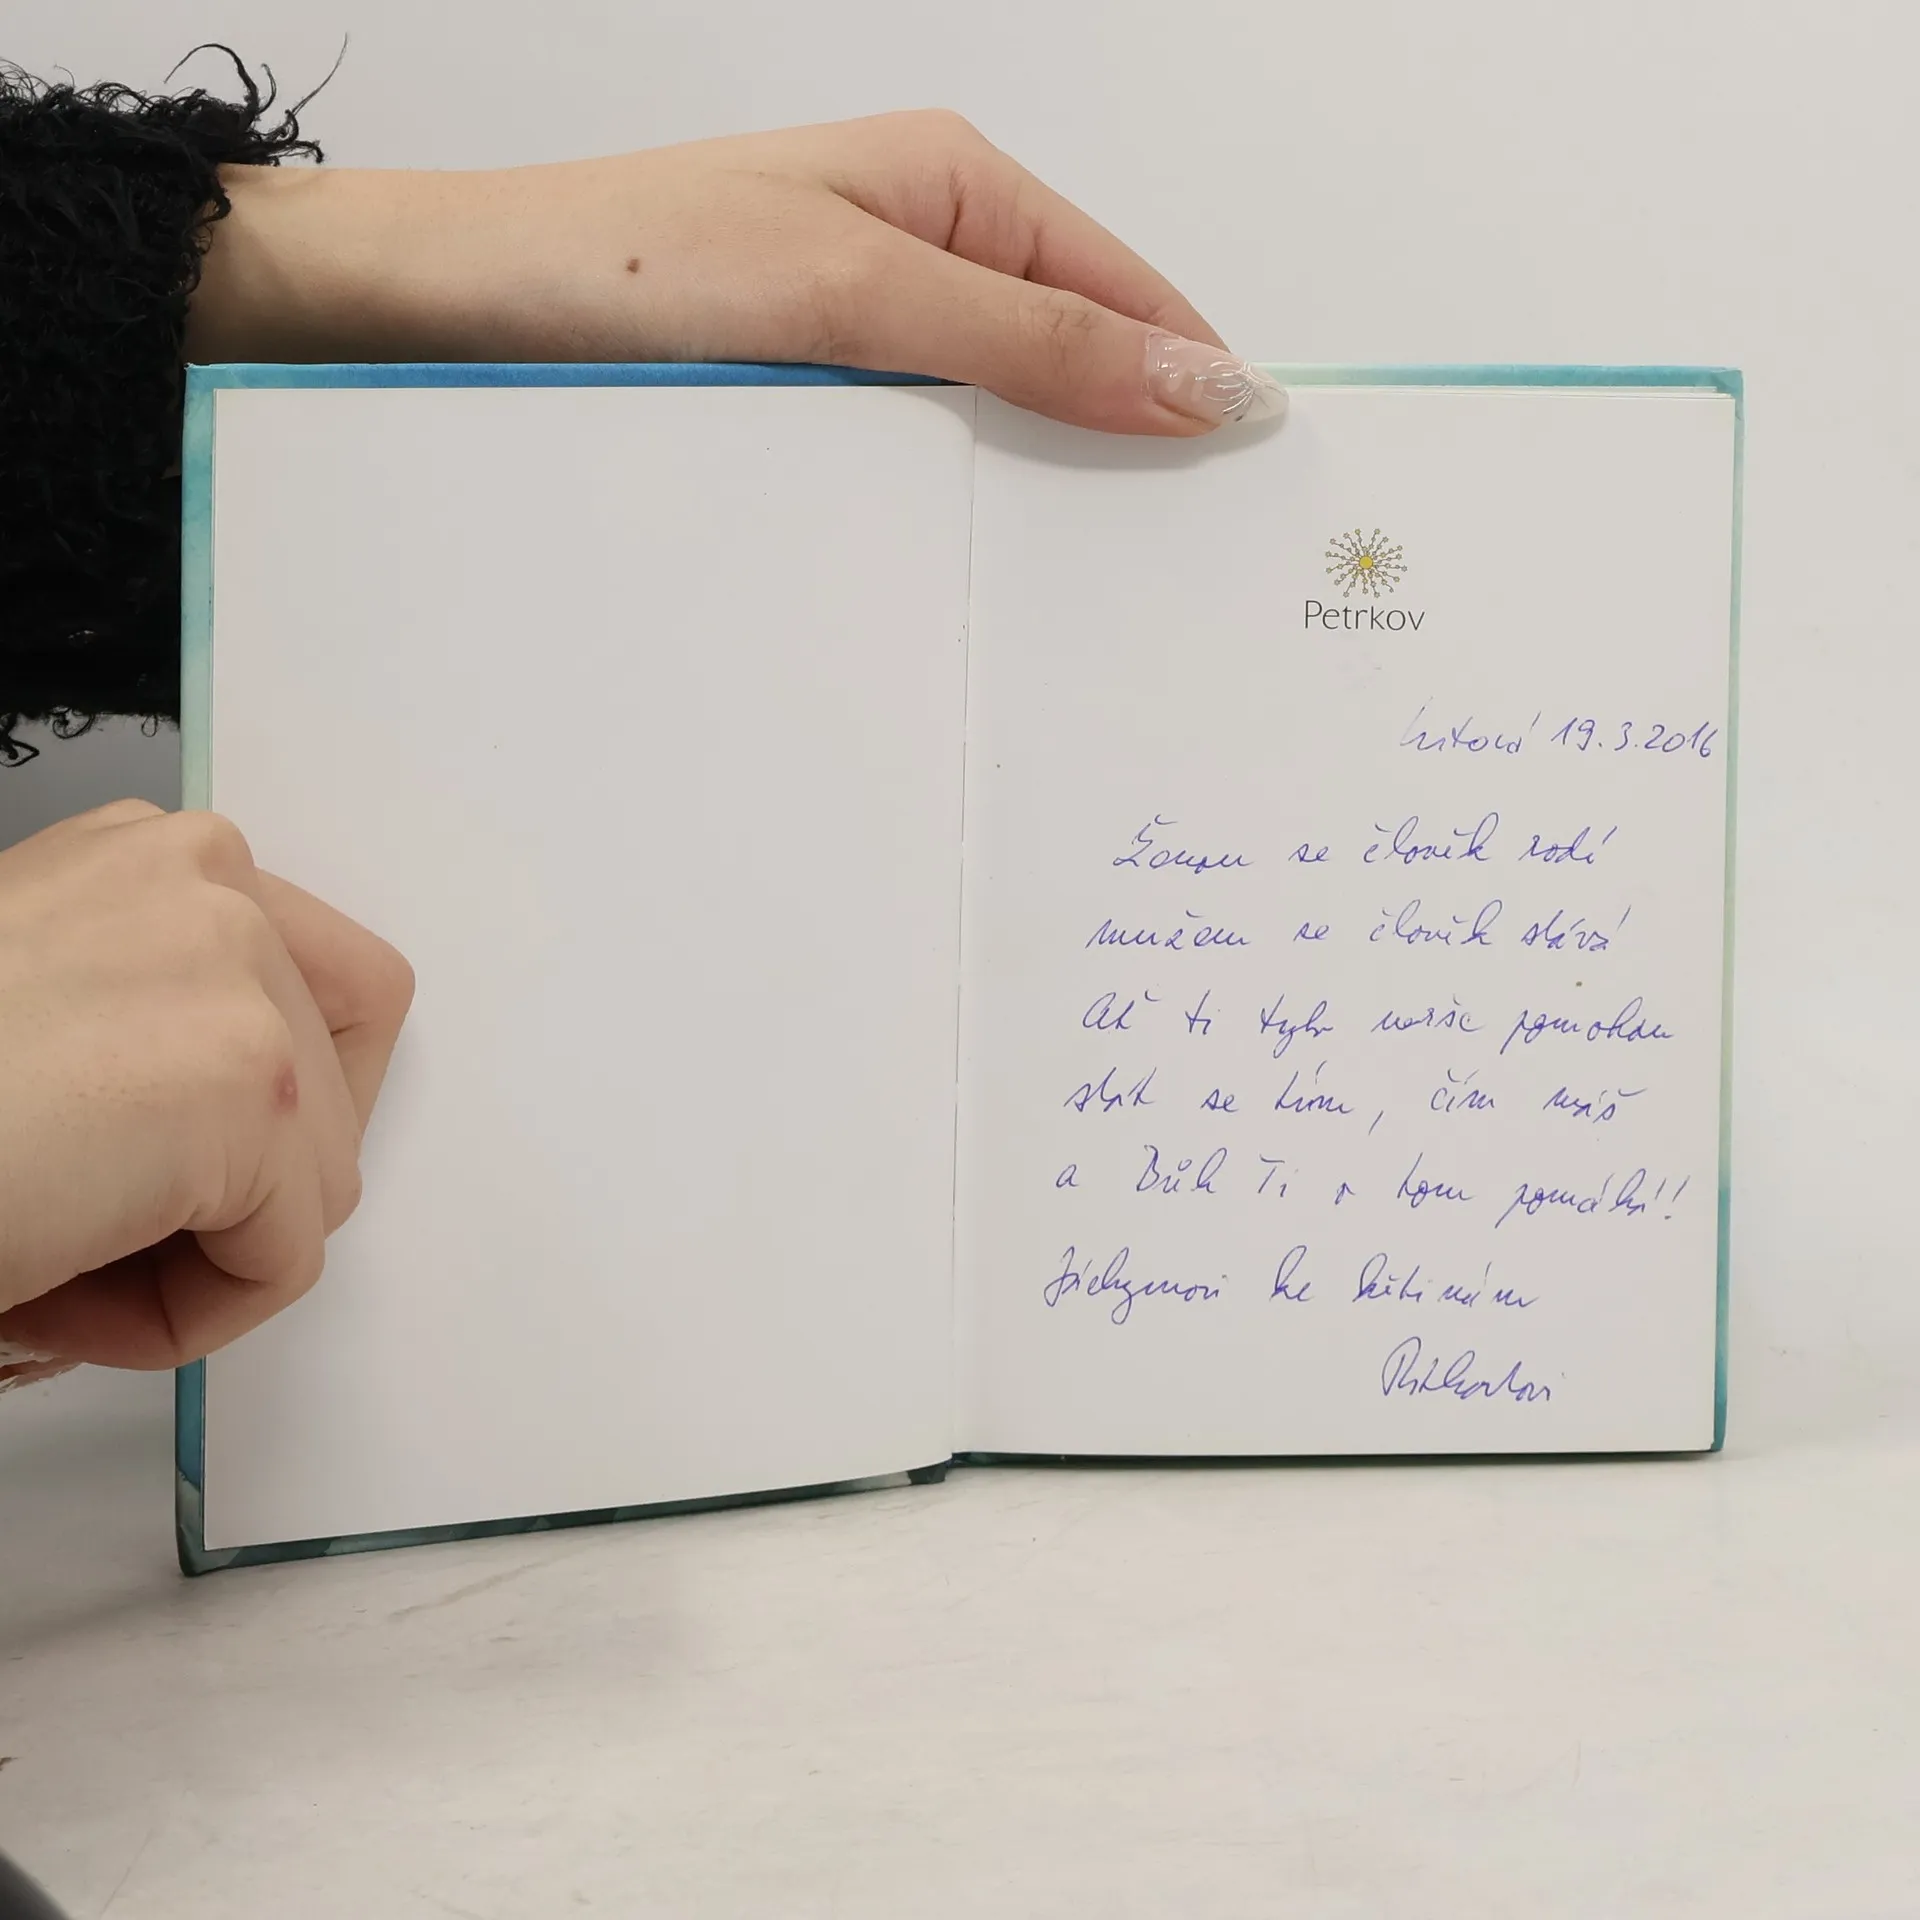 Petrkov
19.3.2016
Ženou se člověk rodí
mužem se člověk stává
Ať ti tyto verše pomohou
stát se tím, čím máš
a Bůh Ti v tom pomáhá!!
Jáchymovi ke křtinám